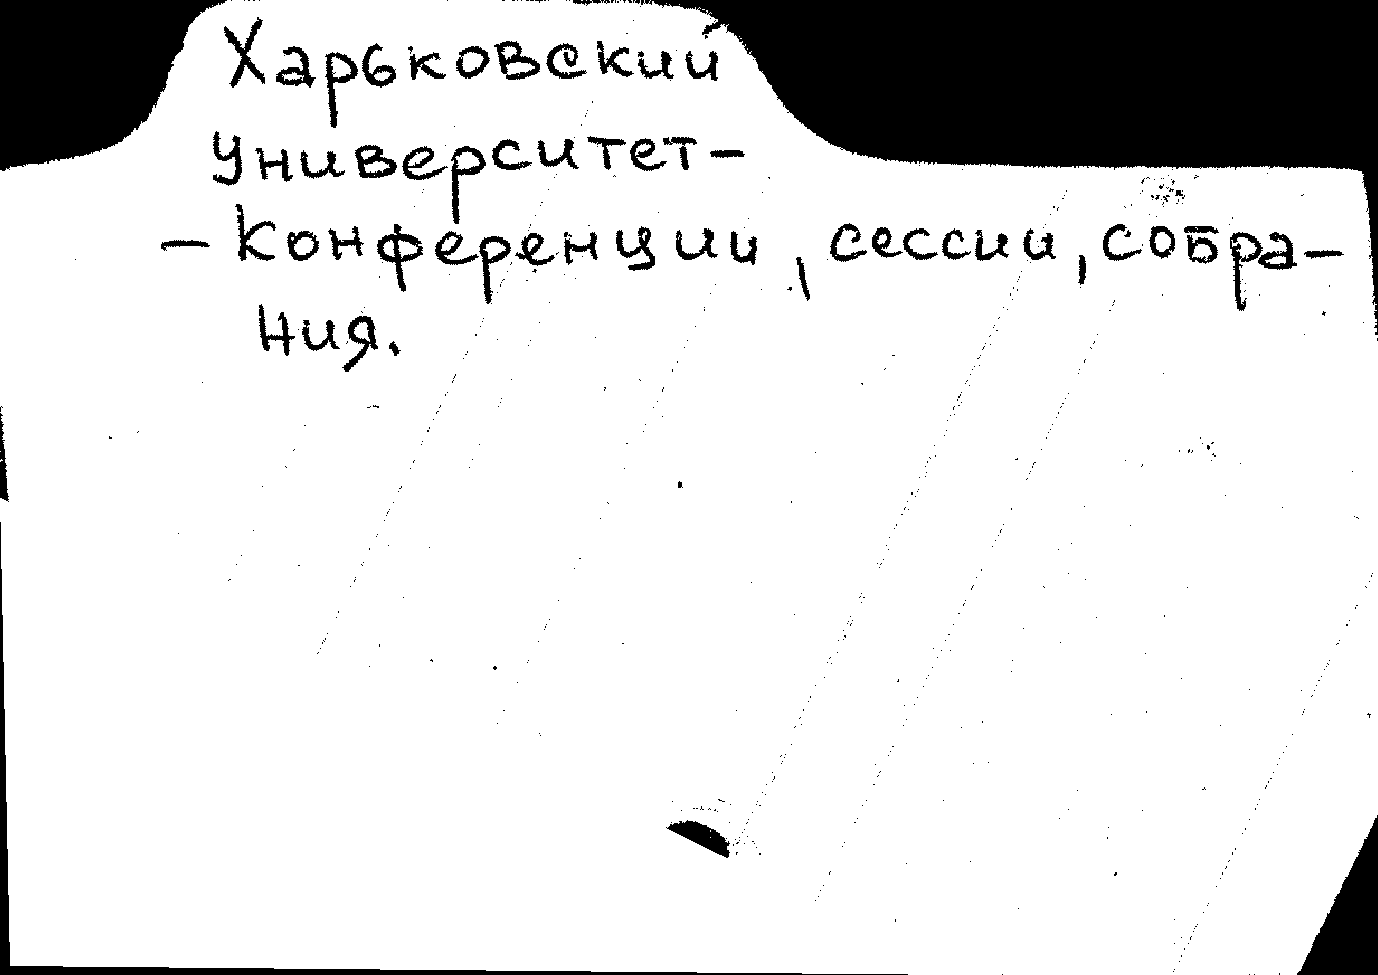 Харьковский
университет-
- конференции, сессии, собра-
ния.